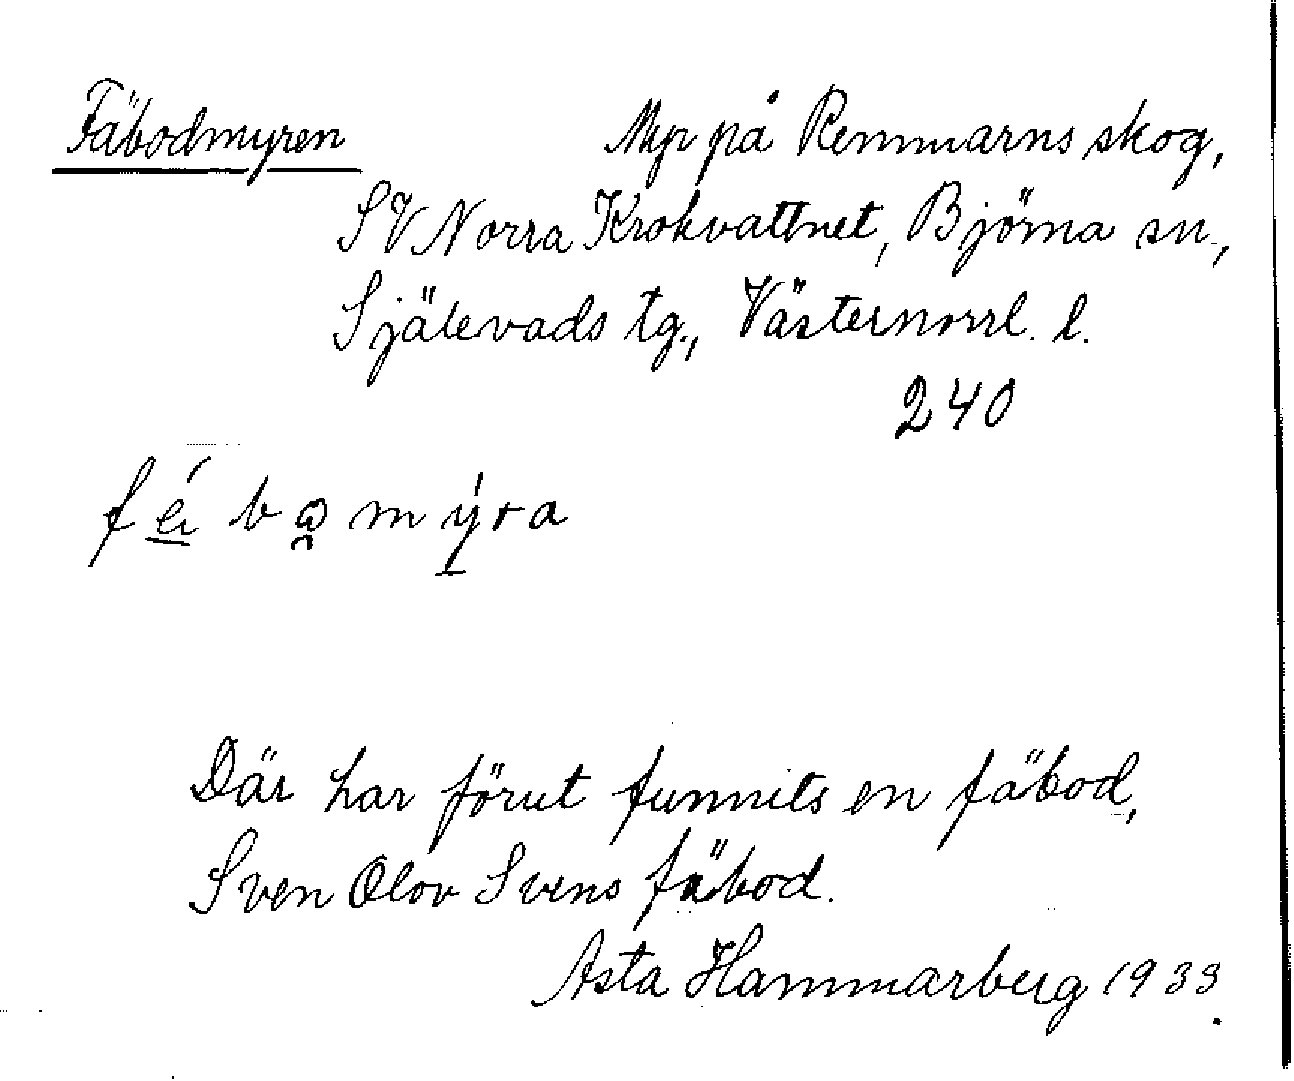 Fäbodmyren Myr på Remmarns skog,
SV Norra Krokvattnet, Björna sn,
Själevads tg., Västernorrl. l.
240
Där har förut funnits en fäbod,
Sven Olov Svens fäbod.
Asta Hammarberg 1933.